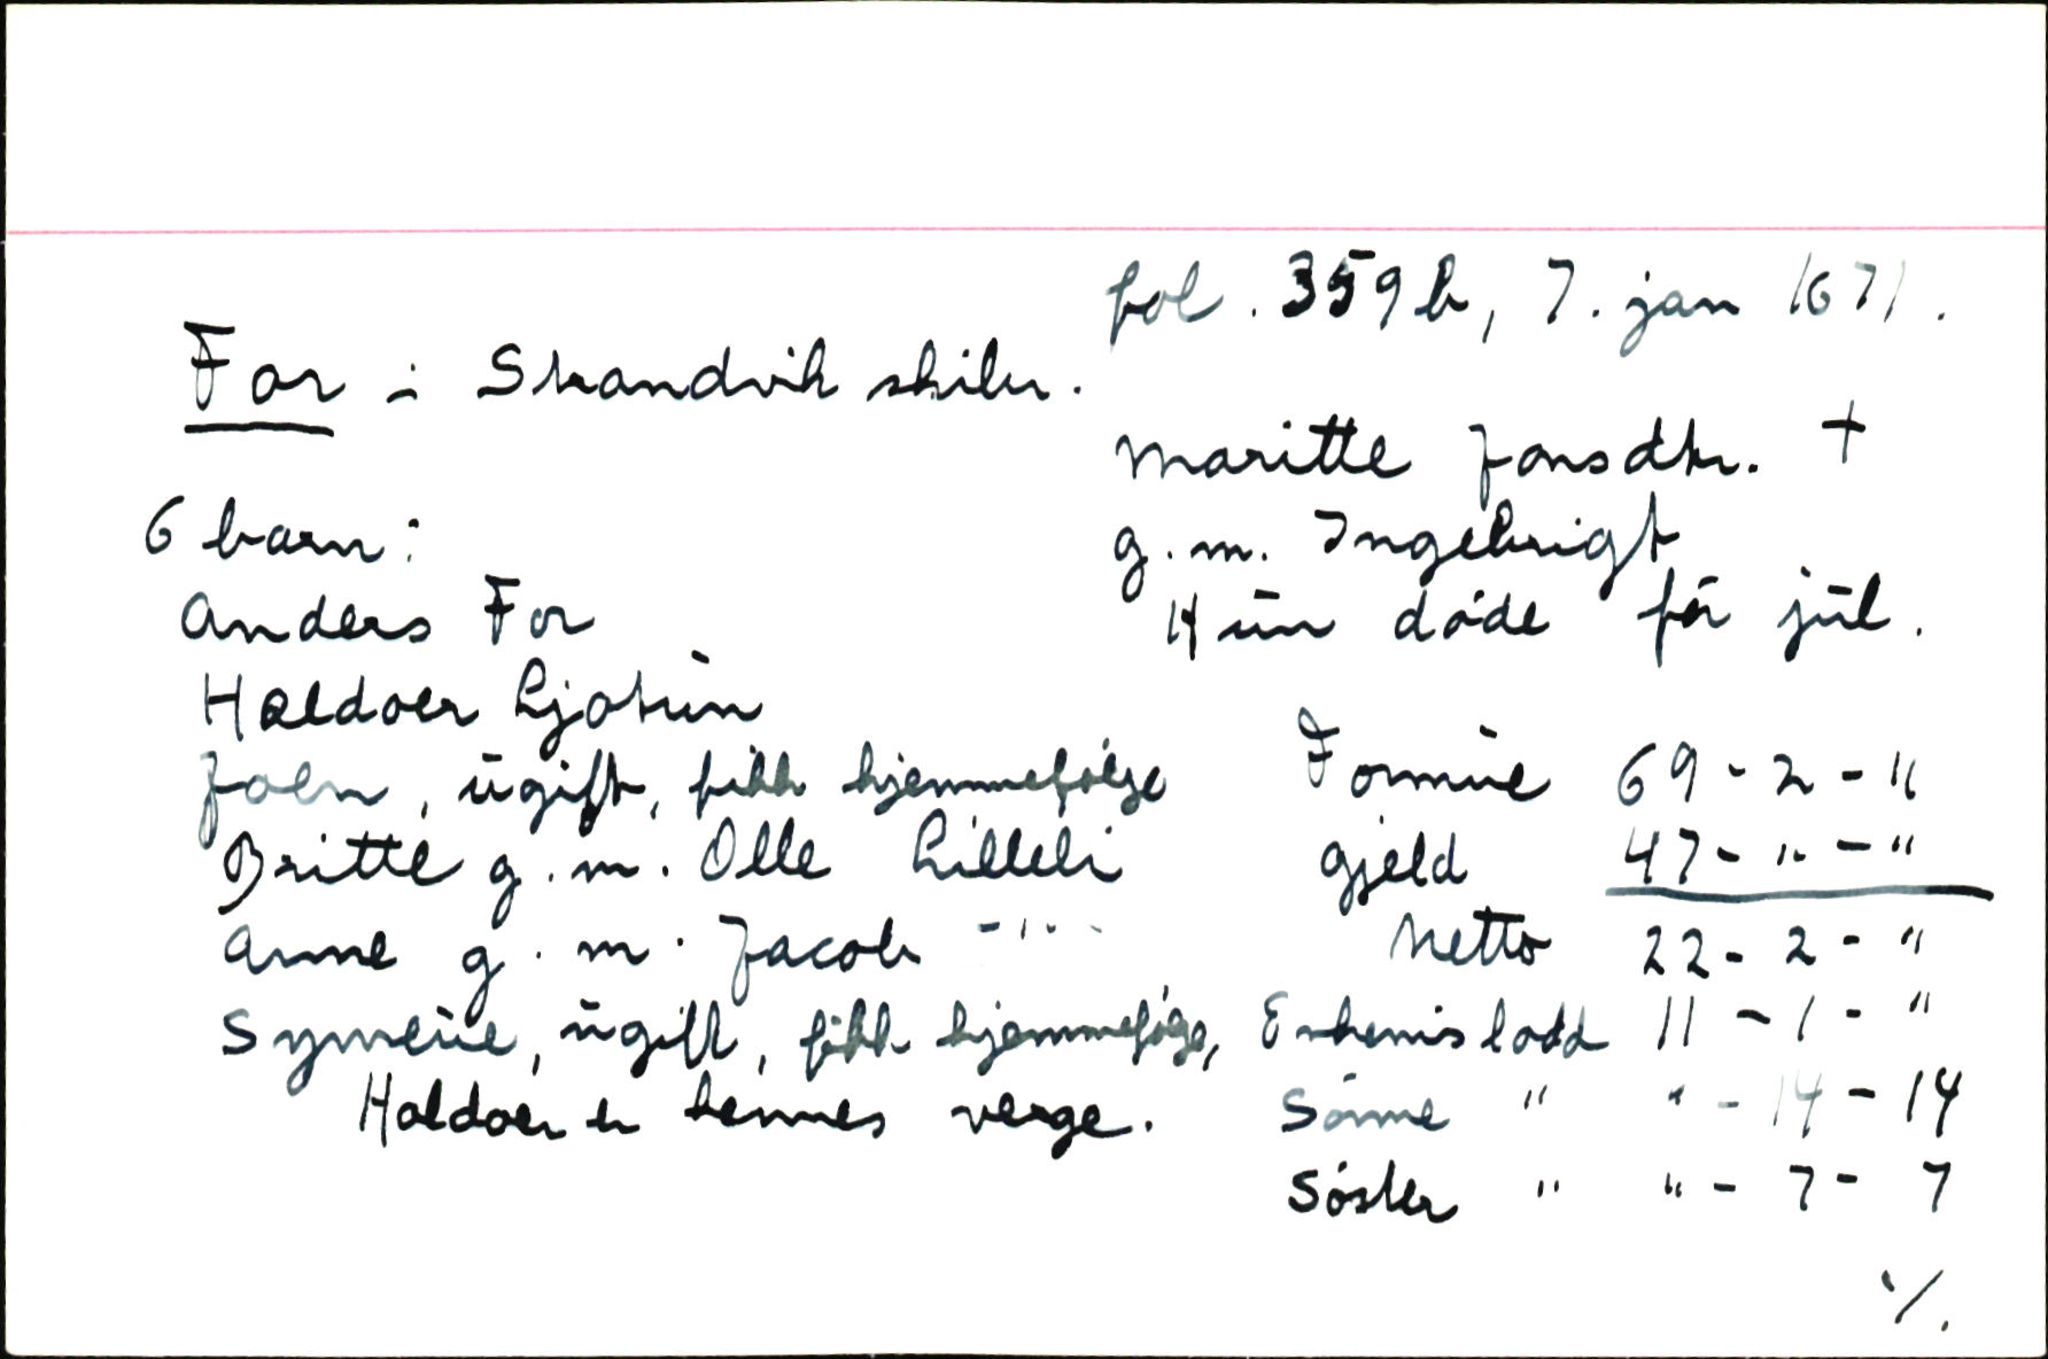 fol. 359b, 7. jan 1671.
For i Strandvik skibr.
Maritte Jonsdtr. +
g.m. Ingebrigt
Hun døde før jul.
6 barn:
Anders For
Haldoer Ljotun
Joen, ugift, fikk hjemmefølge
Britte g.m. Olle Lilleli
Anne g.m. Jacob - " -
Symeue, ugift, fikk hjemmefølge,
Haldoer er hennes verge.
Formue 69 - 2 - "
Gjeld 47 - " - "
Netto 22 - 2 - "
Enkemis lodd 11 - 1 - "
Sønne " " - 14 - 14
Søster " " - 7 - 7
·/.